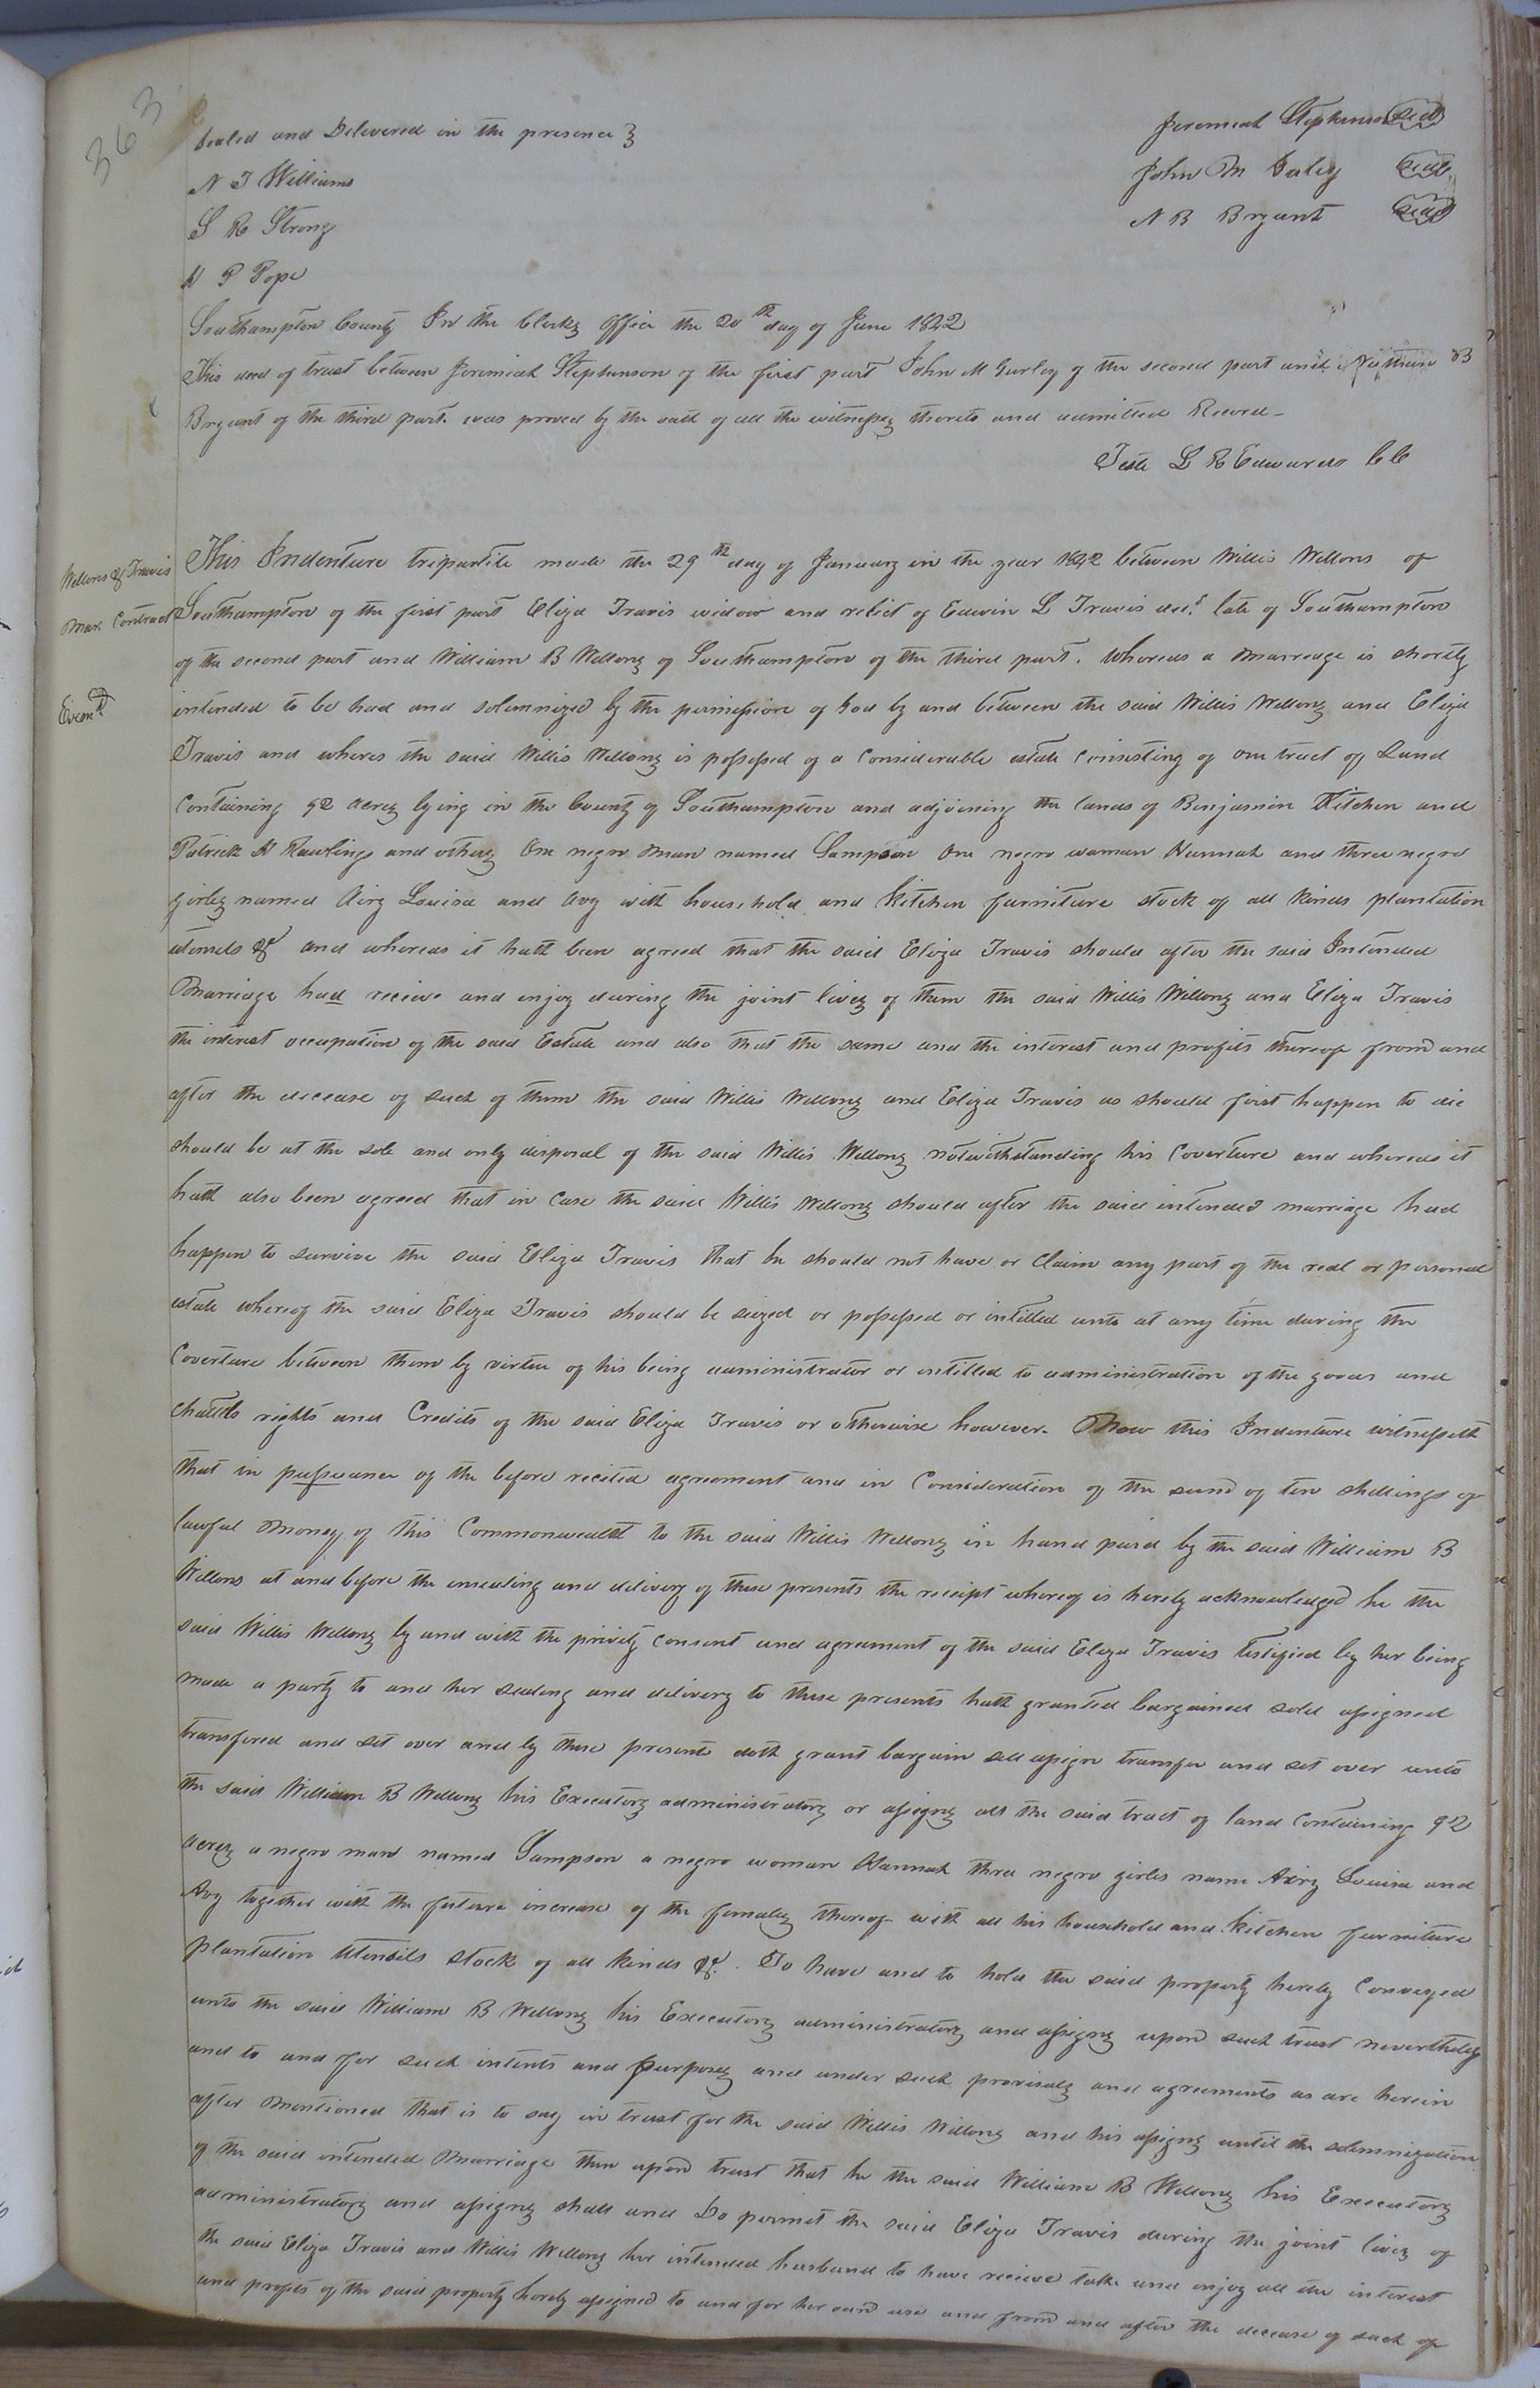 363
Sealed and Delivered in the presence }
Jeremiah Stephenson Seal
N T Williams
John M Gurley Seal
S R Strong
N B Bryant Seal
H P Pope
Southampton County In the Clerks Office the 20th day of June 1822
This deed of trust between Jeremiah Stephenson of the first part John M Gurley of the second part and Nathan B
Bryant of the third part was proved by the oath of all the witnesses thereto and admitted Record-
Teste L R Edwards CC
Wellons & Travis
Mar. Contract
Exemd
This Indenture tripartite made the 29th day of January in the year 1822 between Willis Wellons of
Southampton of the first part Eliza Travis widow and relict of Edwin L Travis decd. late of Southampton
of the second part and William B Wellons of Southampton of the third part. Whereas a marriage is shortly
intended to be had and solemnized by the permission of God by and between the said Willis Wellons and Eliza
Travis and wheres the said Willis Wellons is possessed of a Considerable estate Consisting of one tract of Land
Containing 92 acres lying in the County of Southampton and adjoining the lands of Benjamin Kitchen and
Patrick H Rawlings and others One negro man named Sampson One negro woman Hannah and three negro
girls named Airy Louisa and Avy with household and Kitchen furniture stock of all Kinds plantation
utensels &c and whereas it hath been agreed that the said Eliza Travis should after the said Intended
Marriage had recieve and enjoy during the joint lives of them the said Willis Wellons and Eliza Travis
the interest occupation of the said Estate and also that the same and the interest and profits thereof from and
after the decease of such of them the said Willis Wellons and Eliza Travis as should first happen to die
should be at the sole and only disposal of the said Willis Wellons notwithstanding his Coverture and whereas it
hath also been agreed that in Case the said Willis Wellons should after the said intended marriage had
happen to survive the said Eliza Travis that he should not have or Claim any part of the real or personal
estate whereof the said Eliza Travis should be siezed or possessed or intitled unto at any time during the
Coverture between them by virtue of his being administrator or intitled to administration of the goods and
chattels rights and Credits of the said Eliza Travis or otherwise however. Now this Indenture witnesseth
that in pursuance of the before recited agreement and in Consideration of the sum of ten shillings of
lawful money of this Commonwealth to the said Willis Wellons in hand paid by the said William B
Wellons at and before the ensealing and delivery of these presents the receipt whereof is hereby acknowledged he the
said Willis Wellons by and with the privity consent and agreement of the said Eliza Travis testified by her being
made a party to and her sealing and delivery to these presents hath granted bargained sold assigned
transfered and set over and by these presents doth grant bargain sell assign transfer and set over unto
the said William B Wellons his Executors administrators or assigns all the said tract of land Containing 92
acres a negro man named Sampson a negro woman Hannah three negro girles name Airy Louisa and
Avy together with the future increase of the females thereof with all his household and kitchen furniture
plantation Utensils stock of all Kinds &c. To have and to hold the said property hereby Conveyed
unto the said William B Wellons his Executors administrators and assigns upon such trust nevertheless
and to and for such intents and purposes and under such provisoes and agreements as are herein
after mentioned that is to say in trust for the said Willis Wellons and his assigns until the solemnization
of the said intended Marriage then upon trust that he the said William B Wellons his Executors
administrators and assigns shall and Do permit the said Eliza Travis during the joint lives of
the said Eliza Travis and Willis Wellons her intended husband to have recieve take and enjoy all the interest
and profits of the said property hereby assigned to and for her own use and from and after the decease of such of